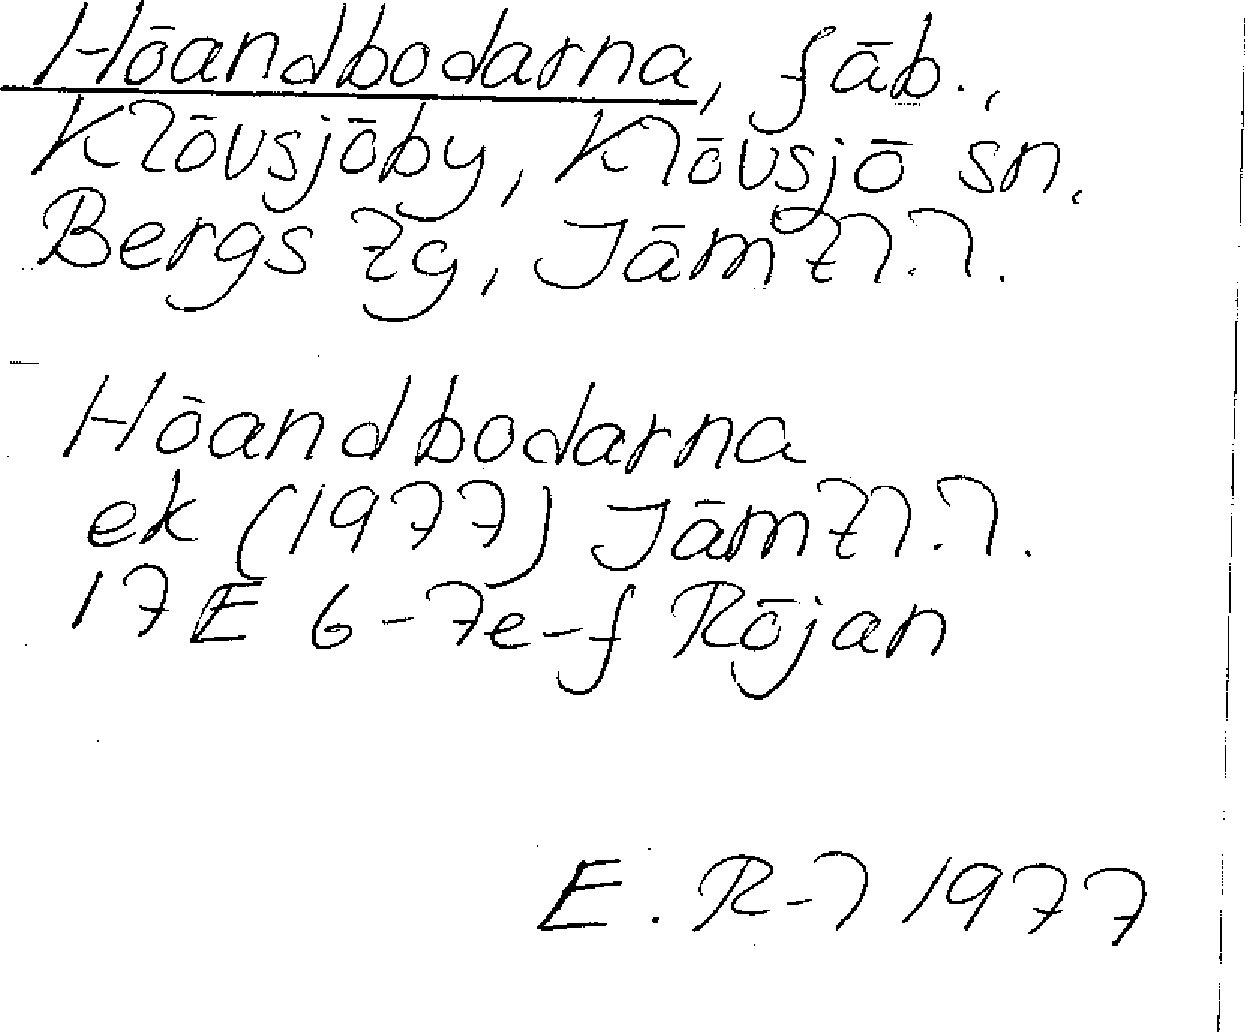 Höandbodarna, fäb.,
Klövsjöby, Klövsjö sn,
Bergs tg, Jämtl.l.
Höandbodarna
ek (1977) Jämtl.l.
17E 6-7e-f Röjan
E. R-l 1977